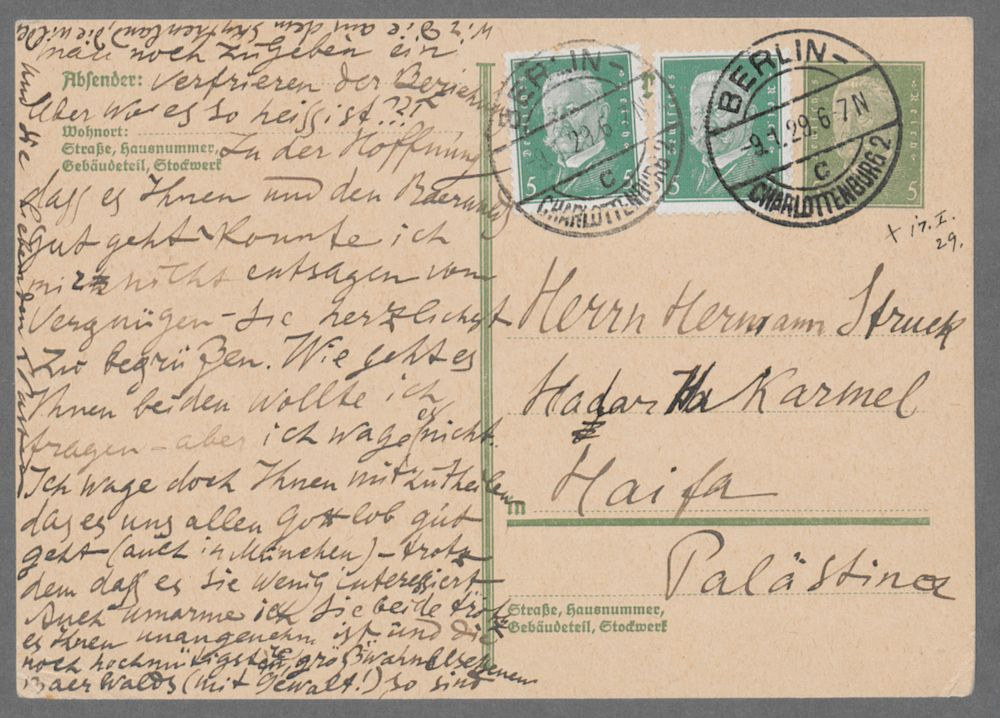 man noch zugeben ein
Absender: Verfrieren der Beziehung
Aber wo es so heiss ist??!
Wohnort:
Straße, Hausnummer,
Gebäudeteil, Stockwerk
In der Hoffnung
dass es Ihnen und den
gut geht konnte ich
mir nicht entsagen vom
Vergnügen - Sie herzlichst
zu begrüßen. Wie geht es
Ihnen beiden wollte ich
fragen - aber ich wage es nicht.
Ich wage doch Ihnen mitzutheilen
dass es uns allen Gott lob gut
geht (auch in München) - trotz
dem dass es Sie wenig interessiert
Auch umarme ich Sie beide trotz
es Ihnen unangenehm ist und die
noch hochmütigsten größwahn
Baerwalds (mit Gewalt!) so sind
und die
wie die aus dem die wilde
BERLIN-
CHARLOTTENBURG 2
-9.1.29. 6-7N
c
BERLIN-
CHARLOTTENBURG 2
-9.1.29. 6-7N
c
Deutsches Reich
5
5
Deutsches Reich
5
5
+ 17. I.
29.
Herrn Hermann Struck
Hadar Ha Karmel
in Haifa
Palästina
Straße, Hausnummer,
Gebäudeteil, Stockwerk